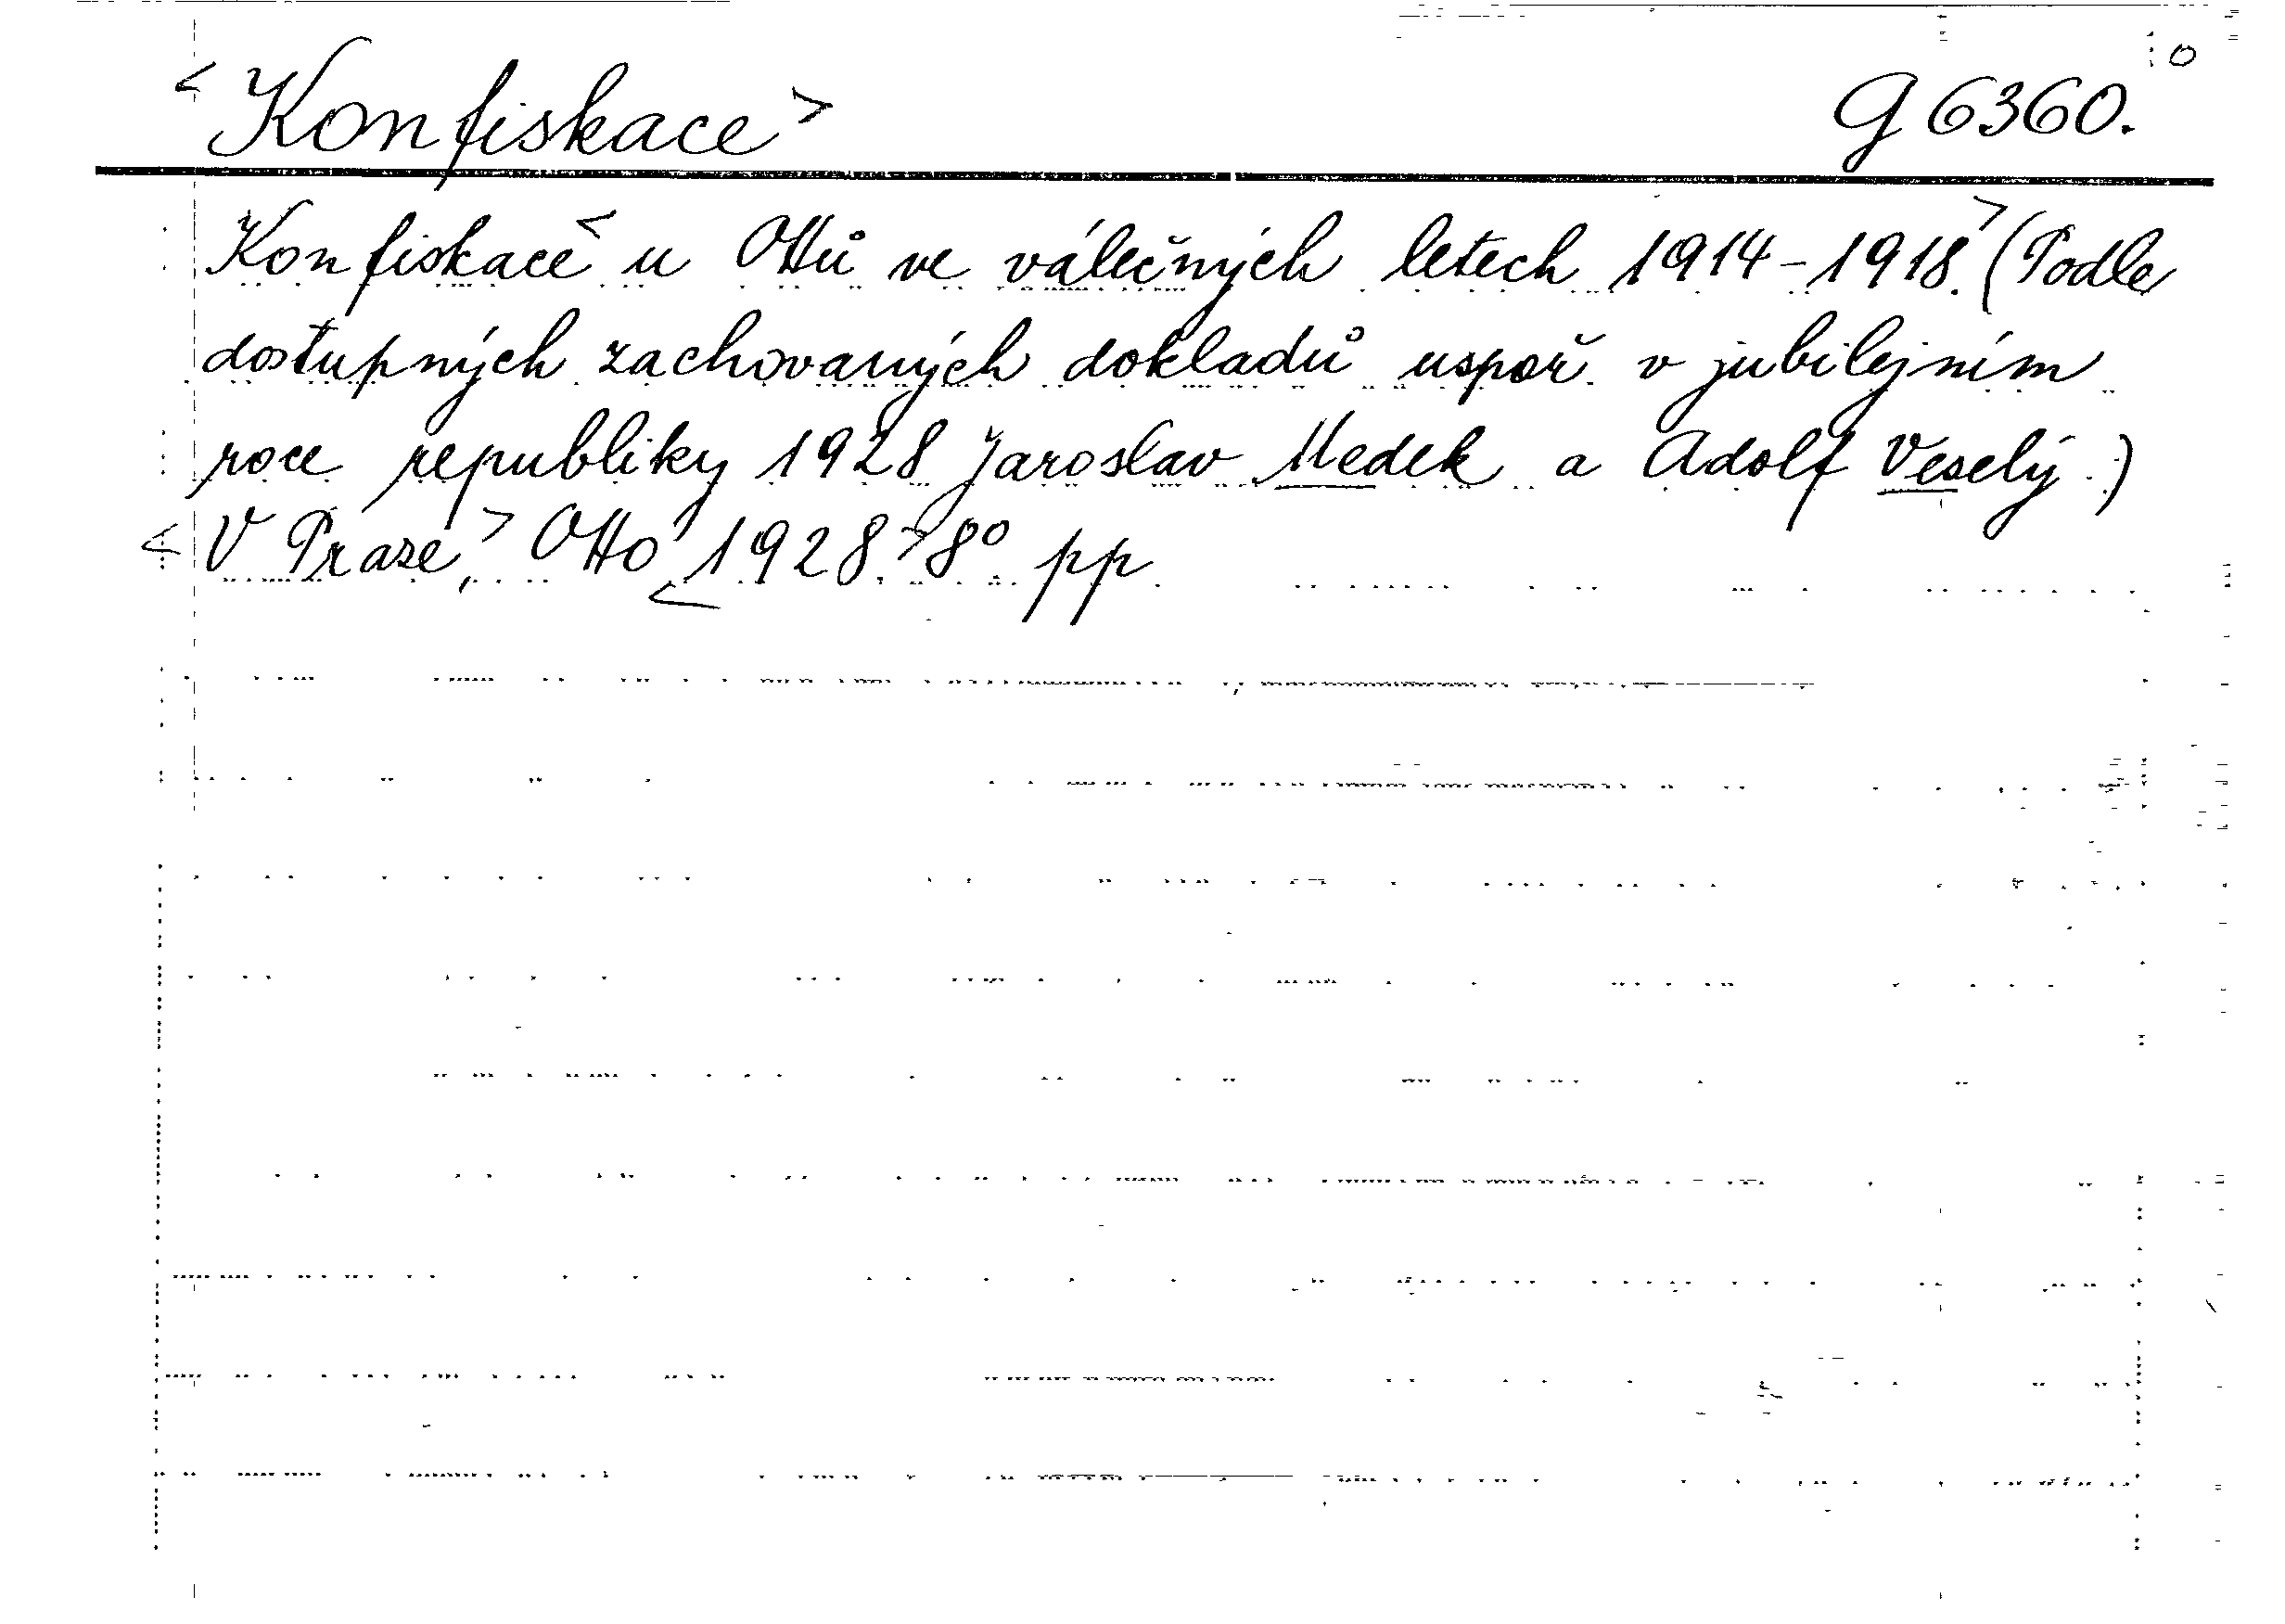 <Konfiskace> G 6360.
Konfiskace< u Ottů ve válečných letech 1914-1918.> (Podle
dostupných zachovaných dokladů uspoř. v jubilejním
roce republiky 1928 Jaroslav Medek a Adolf Veselý.)
<V Praze,> Otto <1928.> 8° pp.